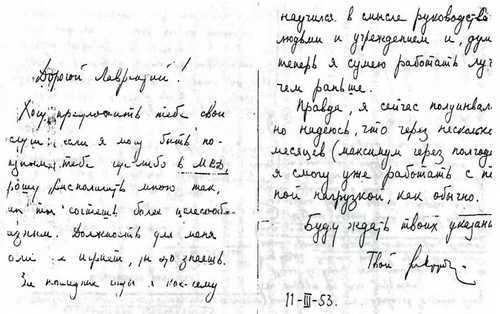 Дорогой Лаврентий!
Хочу предложить тебе свои
услуги: если я могу быть по-
лезным тебе где-либо в МВД,
прошу располагать мною так,
как ты сочтешь более целесооб-
разным. Должность для меня
роли не играет, ты это знаешь.
За последнее время я кое-чему
научился в смысле руководства
людьми и учреждением и, дум
теперь я сумею работать луч
чем раньше.
Правда, я сейчас полуинвал
но надеюсь, что через несколько
месяцев (максимум через полгода
я смогу уже работать с по
ной нагрузкой, как обычно.
Буду ждать твоих указани
Твой
11-III-53.